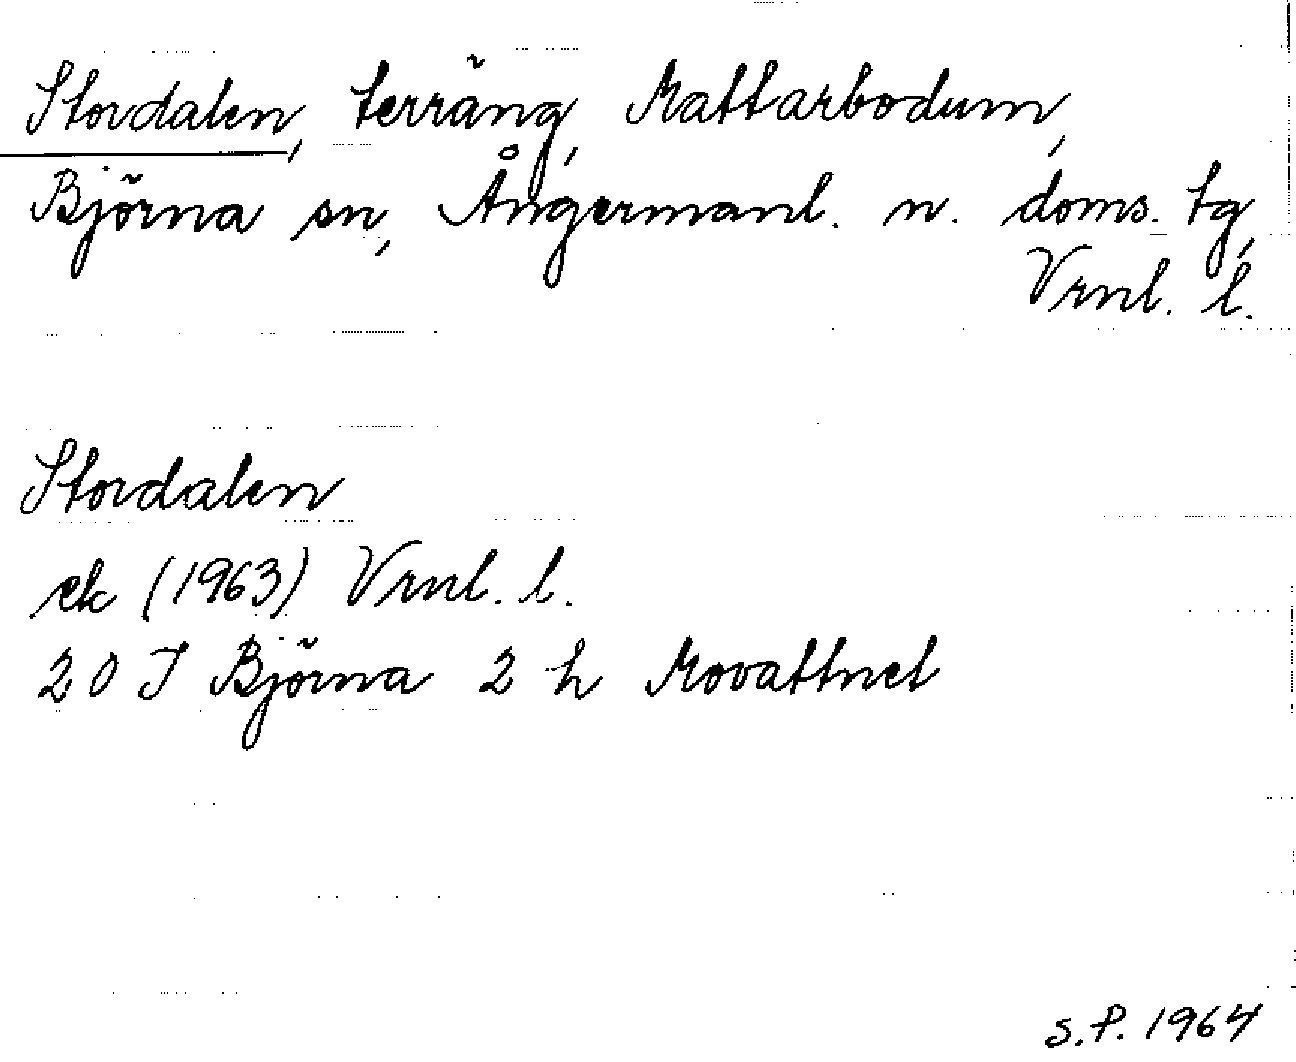 Stordalen, terräng, Mattarbodum,
Björna sn, Ångermanl. n. doms. tg,
Vrnl. l.
Stordalen
ek (1963) Vrnl. l.
20 I Björna 2 h Movattnet
S.P. 1964